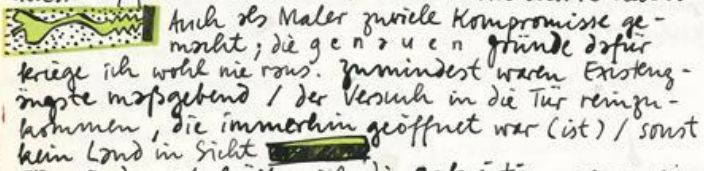 Auch als Maler zuviele Kompromisse ge-
macht; die genauen Gründe dafür
kriege ich wohl nie raus. Zumindest waren Existenz-
ängste maßgebend / der Versuch in die Tür reinzu-
kommen, die immerhin geöffnet war (ist) / sonst
kein Land in Sicht